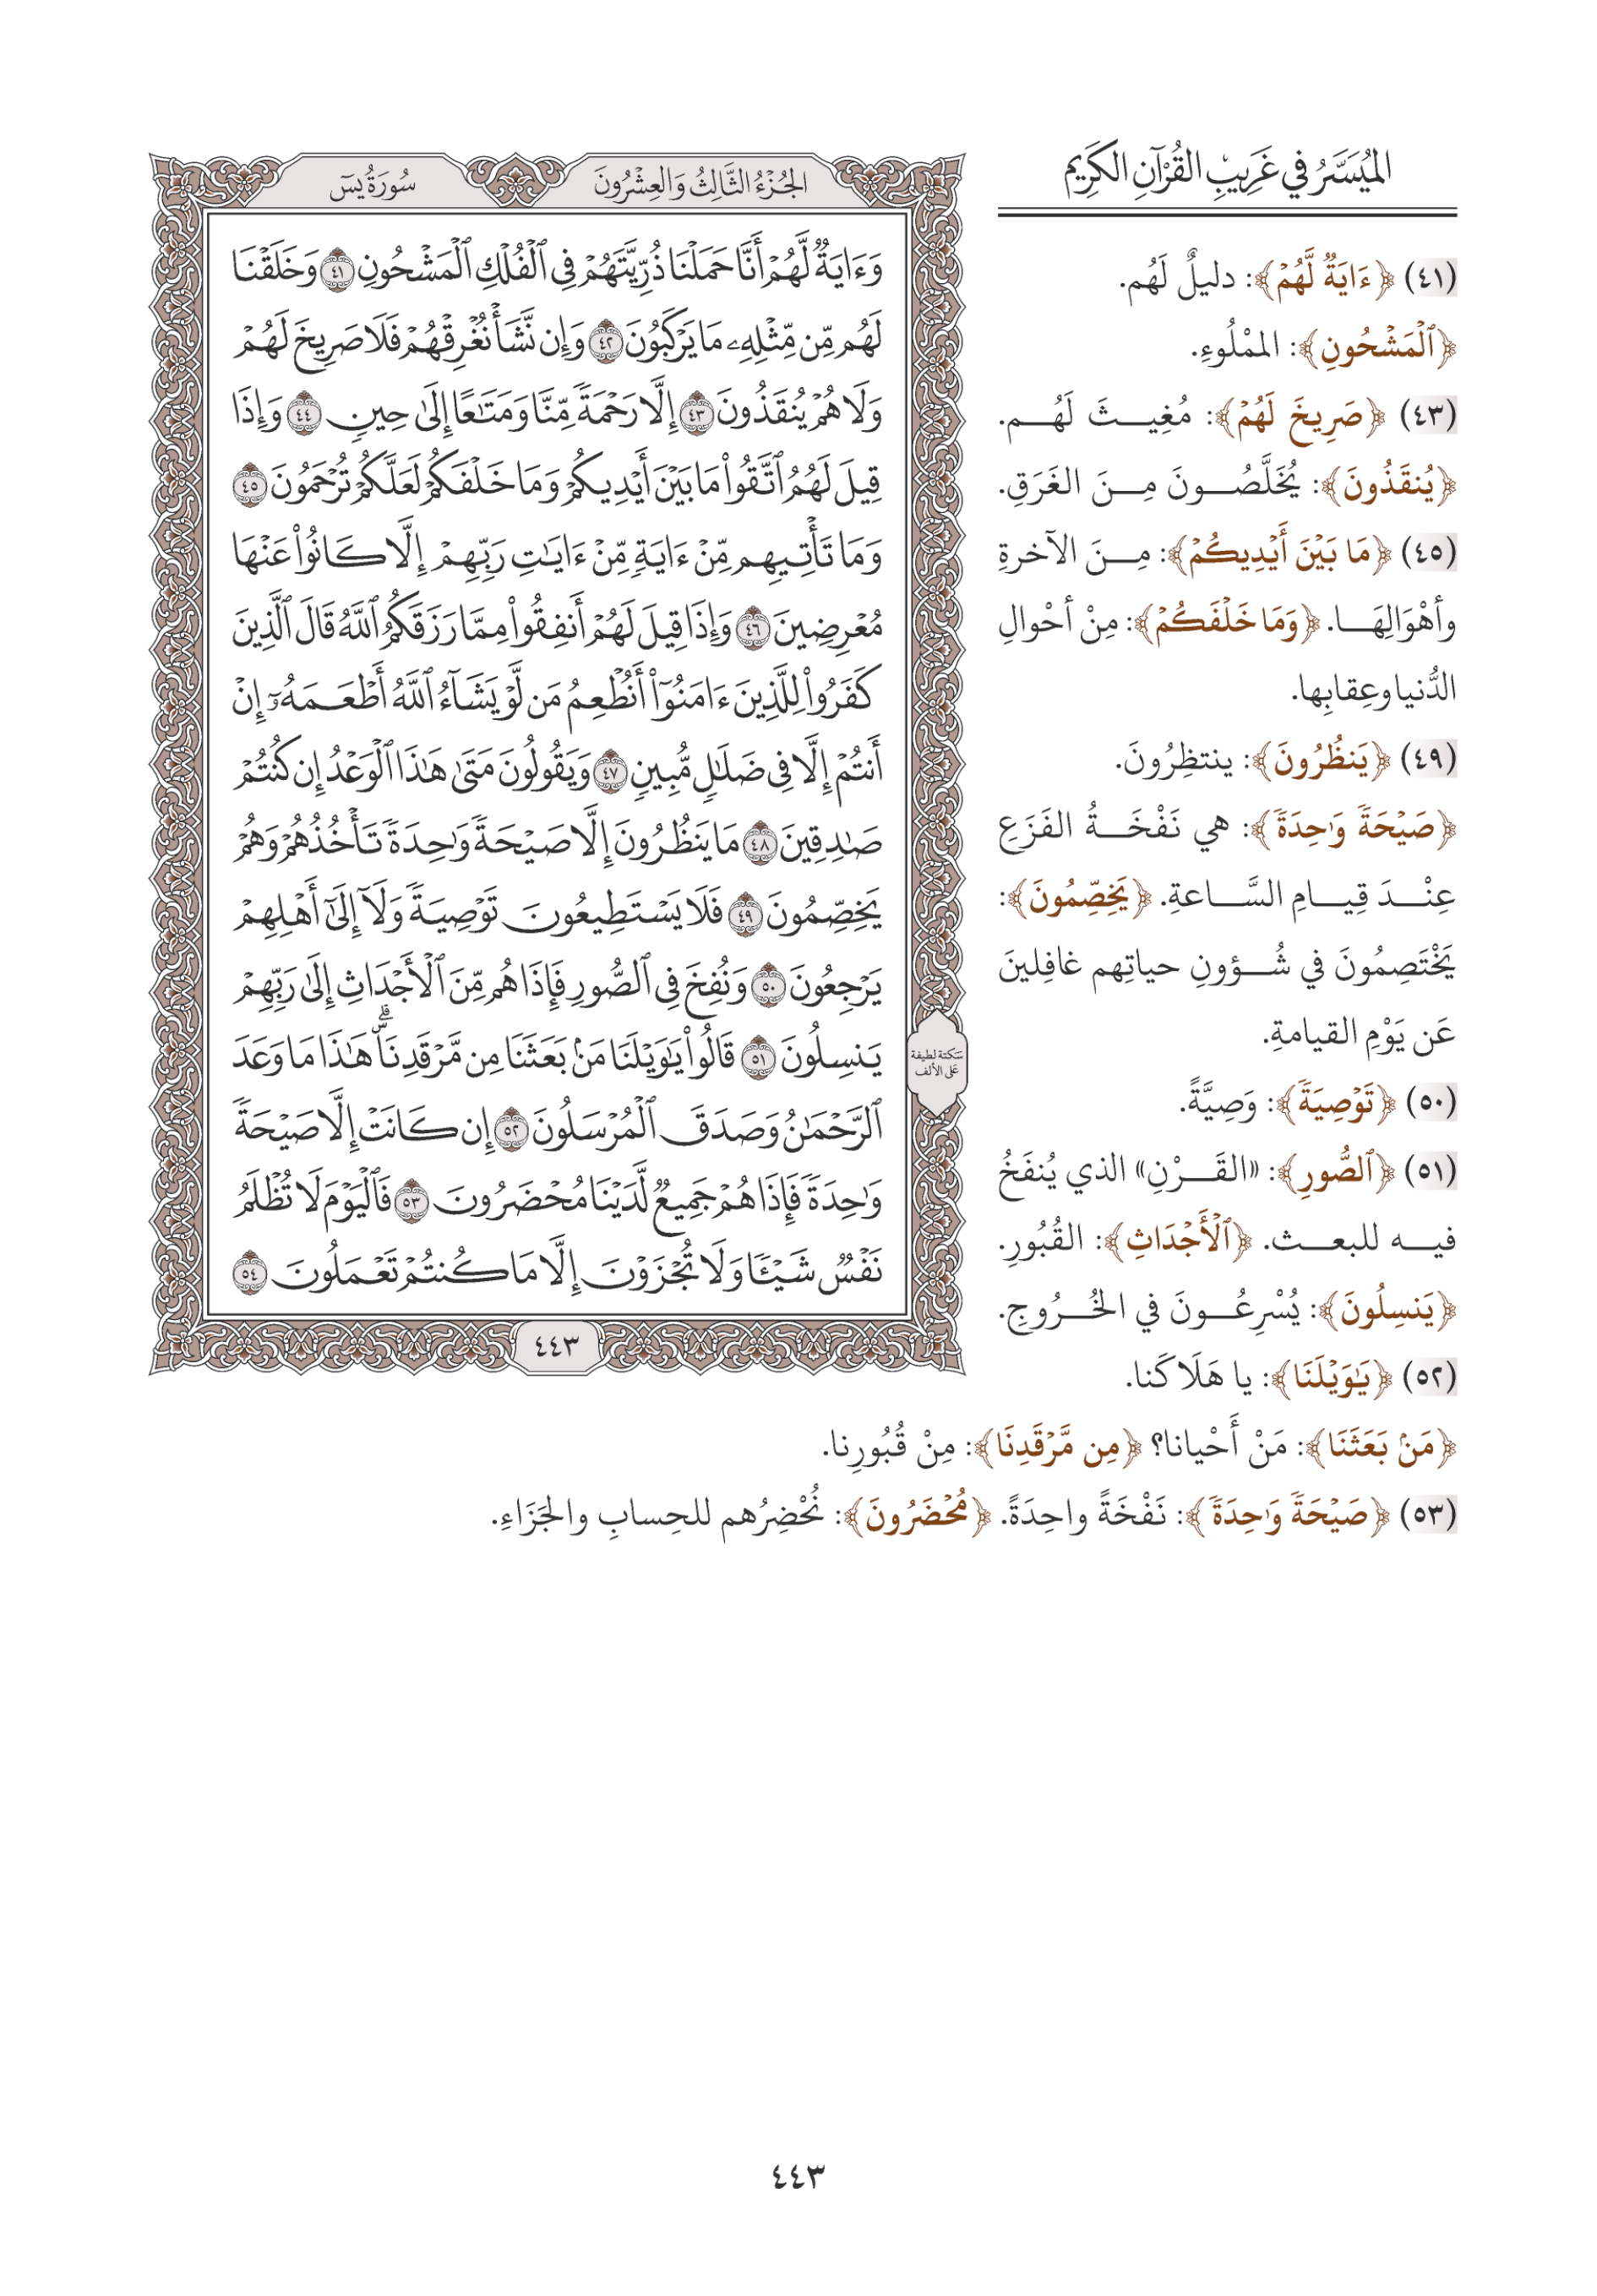 الميسر في غريب القرآن الكريم
(٤١) ﴿ءَايَةٌ لَّهُمْ﴾: دليلٌ لَهُم.
﴿ٱلْمَشْحُونِ﴾: الممْلُوءِ.
(٤٣) ﴿صَرِيخَ لَهُمْ﴾: مُغِيثَ لَهُم.
﴿يُنقَذُونَ﴾: يُخَلَّصُونَ مِنَ الغَرَقِ.
(٤٥) ﴿مَا بَيْنَ أَيْدِيكُمْ﴾: مِنَ الآخرةِ
وأهْوَالِهَا. ﴿وَمَا خَلْفَكُمْ﴾: مِنْ أحْوالِ
الدُّنيا وعِقابِها.
(٤٩) ﴿يَنظُرُونَ﴾: ينتظِرُونَ.
﴿صَيْحَةً وَٰحِدَةً﴾: هي نَفْخَةُ الفَزَعِ
عِنْدَ قِيامِ السَّاعةِ. ﴿يَخِصِّمُونَ﴾:
يَخْتَصِمُونَ في شُؤونِ حياتِهم غافِلينَ
عَن يَوْمِ القيامةِ.
(٥٠) ﴿تَوْصِيَةً﴾: وَصِيَّةً.
(٥١) ﴿ٱلصُّورِ﴾: «القَرْنِ» الذي يُنفَخُ
فيه للبعث. ﴿ٱلْأَجْدَاثِ﴾: القُبُورِ.
﴿يَنسِلُونَ﴾: يُسْرِعُونَ في الخُرُوجِ.
(٥٢) ﴿يَٰوَيْلَنَا﴾: يا هَلَاكَنا.
﴿مَنۢ بَعَثَنَا﴾: مَنْ أَحْيانا؟ ﴿مِن مَّرْقَدِنَا﴾: مِنْ قُبُورِنا.
(٥٣) ﴿صَيْحَةً وَٰحِدَةً﴾: نَفْخَةً واحِدَةً. ﴿مُحْضَرُونَ﴾: نُحْضِرُهم للحِسابِ والجَزَاءِ.
الجُزْءُ الثَّالِثُ وَالعِشْرُونَ
سُورَةُ يسٓ
وَءَايَةٌ لَّهُمْ أَنَّا حَمَلْنَا ذُرِّيَّتَهُمْ فِي ٱلْفُلْكِ ٱلْمَشْحُونِ ٤١ وَخَلَقْنَا
لَهُم مِّن مِّثْلِهِۦ مَا يَرْكَبُونَ ٤٢ وَإِن نَّشَأْ نُغْرِقْهُمْ فَلَا صَرِيخَ لَهُمْ
وَلَا هُمْ يُنقَذُونَ ٤٣ إِلَّا رَحْمَةً مِّنَّا وَمَتَٰعًا إِلَىٰ حِينٍ ٤٤ وَإِذَا
قِيلَ لَهُمُ ٱتَّقُوا۟ مَا بَيْنَ أَيْدِيكُمْ وَمَا خَلْفَكُمْ لَعَلَّكُمْ تُرْحَمُونَ ٤٥
وَمَا تَأْتِيهِم مِّنْ ءَايَةٍ مِّنْ ءَايَٰتِ رَبِّهِمْ إِلَّا كَانُوا۟ عَنْهَا
مُعْرِضِينَ ٤٦ وَإِذَا قِيلَ لَهُمْ أَنفِقُوا۟ مِمَّا رَزَقَكُمُ ٱللَّهُ قَالَ ٱلَّذِينَ
كَفَرُوا۟ لِلَّذِينَ ءَامَنُوٓا۟ أَنُطْعِمُ مَن لَّوْ يَشَآءُ ٱللَّهُ أَطْعَمَهُۥٓ إِنْ
أَنتُمْ إِلَّا فِي ضَلَٰلٍ مُّبِينٍ ٤٧ وَيَقُولُونَ مَتَىٰ هَٰذَا ٱلْوَعْدُ إِن كُنتُمْ
صَٰدِقِينَ ٤٨ مَا يَنظُرُونَ إِلَّا صَيْحَةً وَٰحِدَةً تَأْخُذُهُمْ وَهُمْ
يَخِصِّمُونَ ٤٩ فَلَا يَسْتَطِيعُونَ تَوْصِيَةً وَلَآ إِلَىٰٓ أَهْلِهِمْ
يَرْجِعُونَ ٥٠ وَنُفِخَ فِي ٱلصُّورِ فَإِذَا هُم مِّنَ ٱلْأَجْدَاثِ إِلَىٰ رَبِّهِمْ
يَنسِلُونَ ٥١ قَالُوا۟ يَٰوَيْلَنَا مَنۢ بَعَثَنَا مِن مَّرْقَدِنَاۜۗ هَٰذَا مَا وَعَدَ
ٱلرَّحْمَٰنُ وَصَدَقَ ٱلْمُرْسَلُونَ ٥٢ إِن كَانَتْ إِلَّا صَيْحَةً
وَٰحِدَةً فَإِذَا هُمْ جَمِيعٌ لَّدَيْنَا مُحْضَرُونَ ٥٣ فَٱلْيَوْمَ لَا تُظْلَمُ
نَفْسٌ شَيْـًٔا وَلَا تُجْزَوْنَ إِلَّا مَا كُنتُمْ تَعْمَلُونَ ٥٤
سكتة لطيفة
على الألف
٤٤٣
٤٤٣